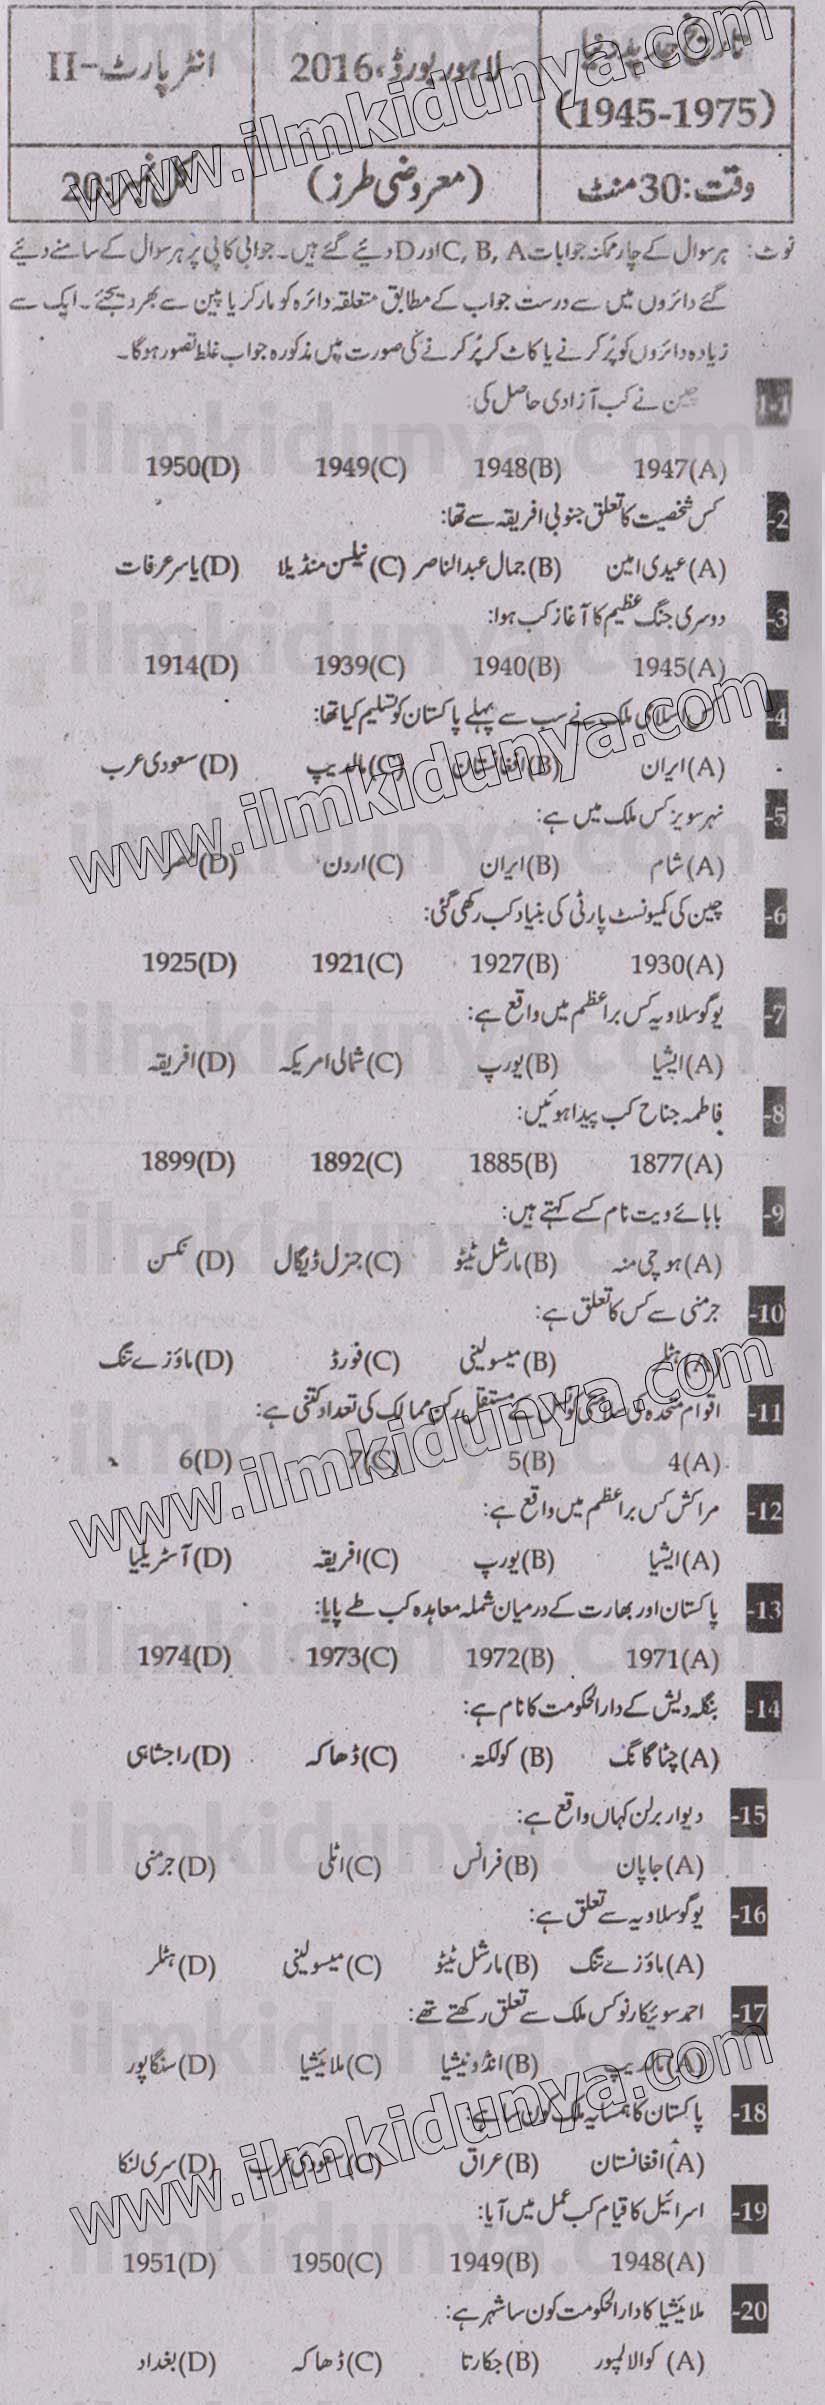 تاریخ جدید دنیا
(1945-1975)
لاہور بورڈ، 2016
انٹر پارٹ-II
وقت: 30 منٹ
(معروضی طرز)
کل نمبر: 20
نوٹ: ہر سوال کے چار ممکنہ جوابات C, B, A اور D دئیے گئے ہیں۔ جوابی کاپی پر ہر سوال کے سامنے دئیے
گئے دائروں میں سے درست جواب کے مطابق متعلقہ دائرہ کو مارکر یا پین سے بھر دیجئے۔ ایک سے
زیادہ دائروں کو پُر کرنے یا کاٹ کر پُر کرنے کی صورت میں مذکورہ جواب غلط تصور ہوگا۔
1-1 چین نے کب آزادی حاصل کی:
(A)1947 (B)1948 (C)1949 (D)1950
2- کس شخصیت کا تعلق جنوبی افریقہ سے تھا:
(A) عیدی امین (B) جمال عبدالناصر (C) نیلسن منڈیلا (D) یاسر عرفات
3- دوسری جنگ عظیم کا آغاز کب ہوا:
(A)1945 (B)1940 (C)1939 (D)1914
4- کس اسلامی ملک نے سب سے پہلے پاکستان کو تسلیم کیا تھا:
(A) ایران (B) افغانستان (C) مالدیپ (D) سعودی عرب
5- نہر سویز کس ملک میں ہے:
(A) شام (B) ایران (C) اردن (D) مصر
6- چین کی کمیونسٹ پارٹی کی بنیاد کب رکھی گئی:
(A)1930 (B)1927 (C)1921 (D)1925
7- یوگوسلاویہ کس براعظم میں واقع ہے:
(A) ایشیا (B) یورپ (C) شمالی امریکہ (D) افریقہ
8- فاطمہ جناح کب پیدا ہوئیں:
(A)1877 (B)1885 (C)1892 (D)1899
9- بابائے ویت نام کسے کہتے ہیں:
(A) ہوچی منہ (B) مارشل ٹیٹو (C) جنرل ڈیگال (D) نکسن
10- جرمنی سے کس کا تعلق ہے:
(A) ہٹلر (B) میسولینی (C) فورڈ (D) ماؤزے تنگ
11- اقوام متحدہ کی سلامتی کونسل کے مستقل رکن ممالک کی تعداد کتنی ہے:
(A)4 (B)5 (C)7 (D)6
12- مراکش کس براعظم میں واقع ہے:
(A) ایشیا (B) یورپ (C) افریقہ (D) آسٹریلیا
13- پاکستان اور بھارت کے درمیان شملہ معاہدہ کب طے پایا:
(A)1971 (B)1972 (C)1973 (D)1974
14- بنگلہ دیش کے دارالحکومت کا نام ہے:
(A) چٹاگانگ (B) کولکتہ (C) ڈھاکہ (D) راجشاہی
15- دیوار برلن کہاں واقع ہے:
(A) جاپان (B) فرانس (C) اٹلی (D) جرمنی
16- یوگوسلاویہ سے تعلق ہے:
(A) ماؤزے تنگ (B) مارشل ٹیٹو (C) میسولینی (D) ہٹلر
17- احمد سوئیکارنو کس ملک سے تعلق رکھتے تھے:
(A) مالدیپ (B) انڈونیشیا (C) ملائیشیا (D) سنگاپور
18- پاکستان کا ہمسایہ ملک کون سا ہے:
(A) افغانستان (B) عراق (C) سعودی عرب (D) سری لنکا
19- اسرائیل کا قیام کب عمل میں آیا:
(A)1948 (B)1949 (C)1950 (D)1951
20- ملائیشیا کا دارالحکومت کون سا شہر ہے:
(A) کوالالمپور (B) جکارتا (C) ڈھاکہ (D) بغداد
www.ilmkidunya.com
www.ilmkidunya.com
www.ilmkidunya.com
www.ilmkidunya.com